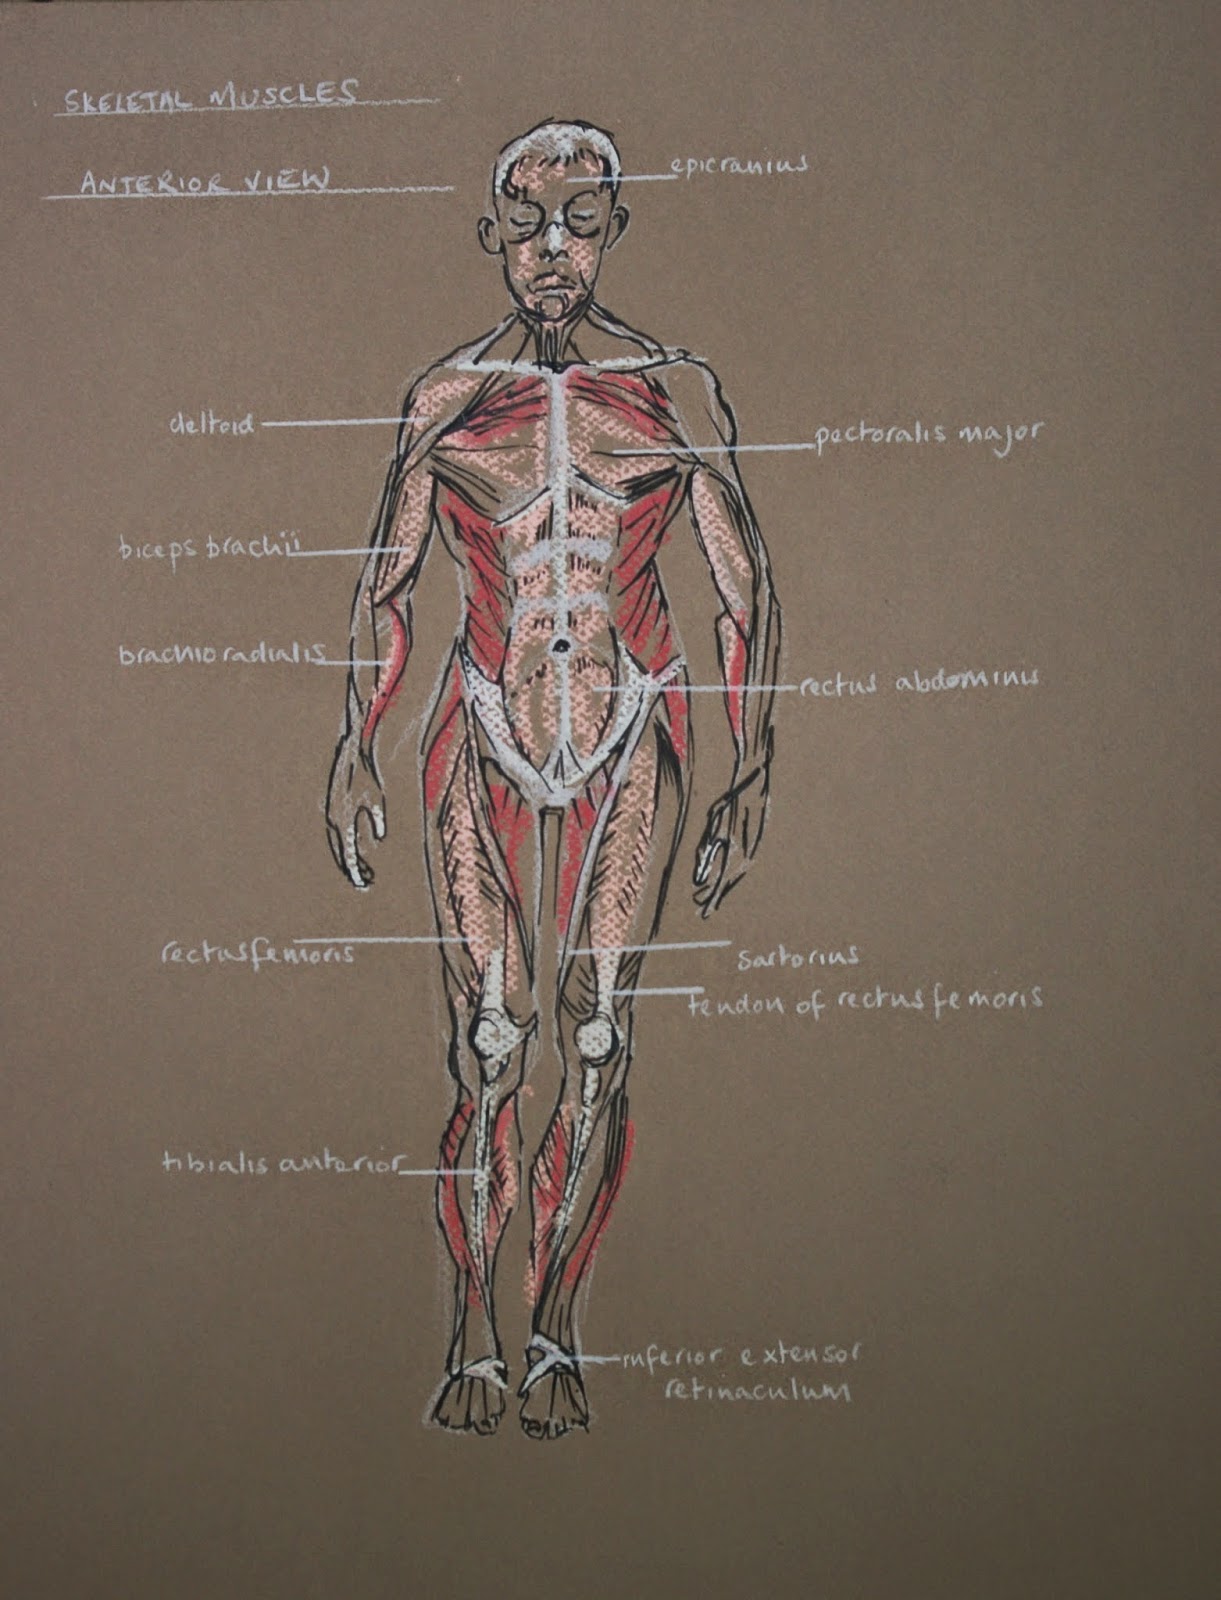 SKELETAL MUSCLES
ANTERIOR VIEW
epicranius
deltoid
pectoralis major
biceps brachii
brachioradialis
rectus abdominus
rectus femoris
sartorius
tendon of rectus femoris
tibialis anterior
inferior extensor
retinaculum